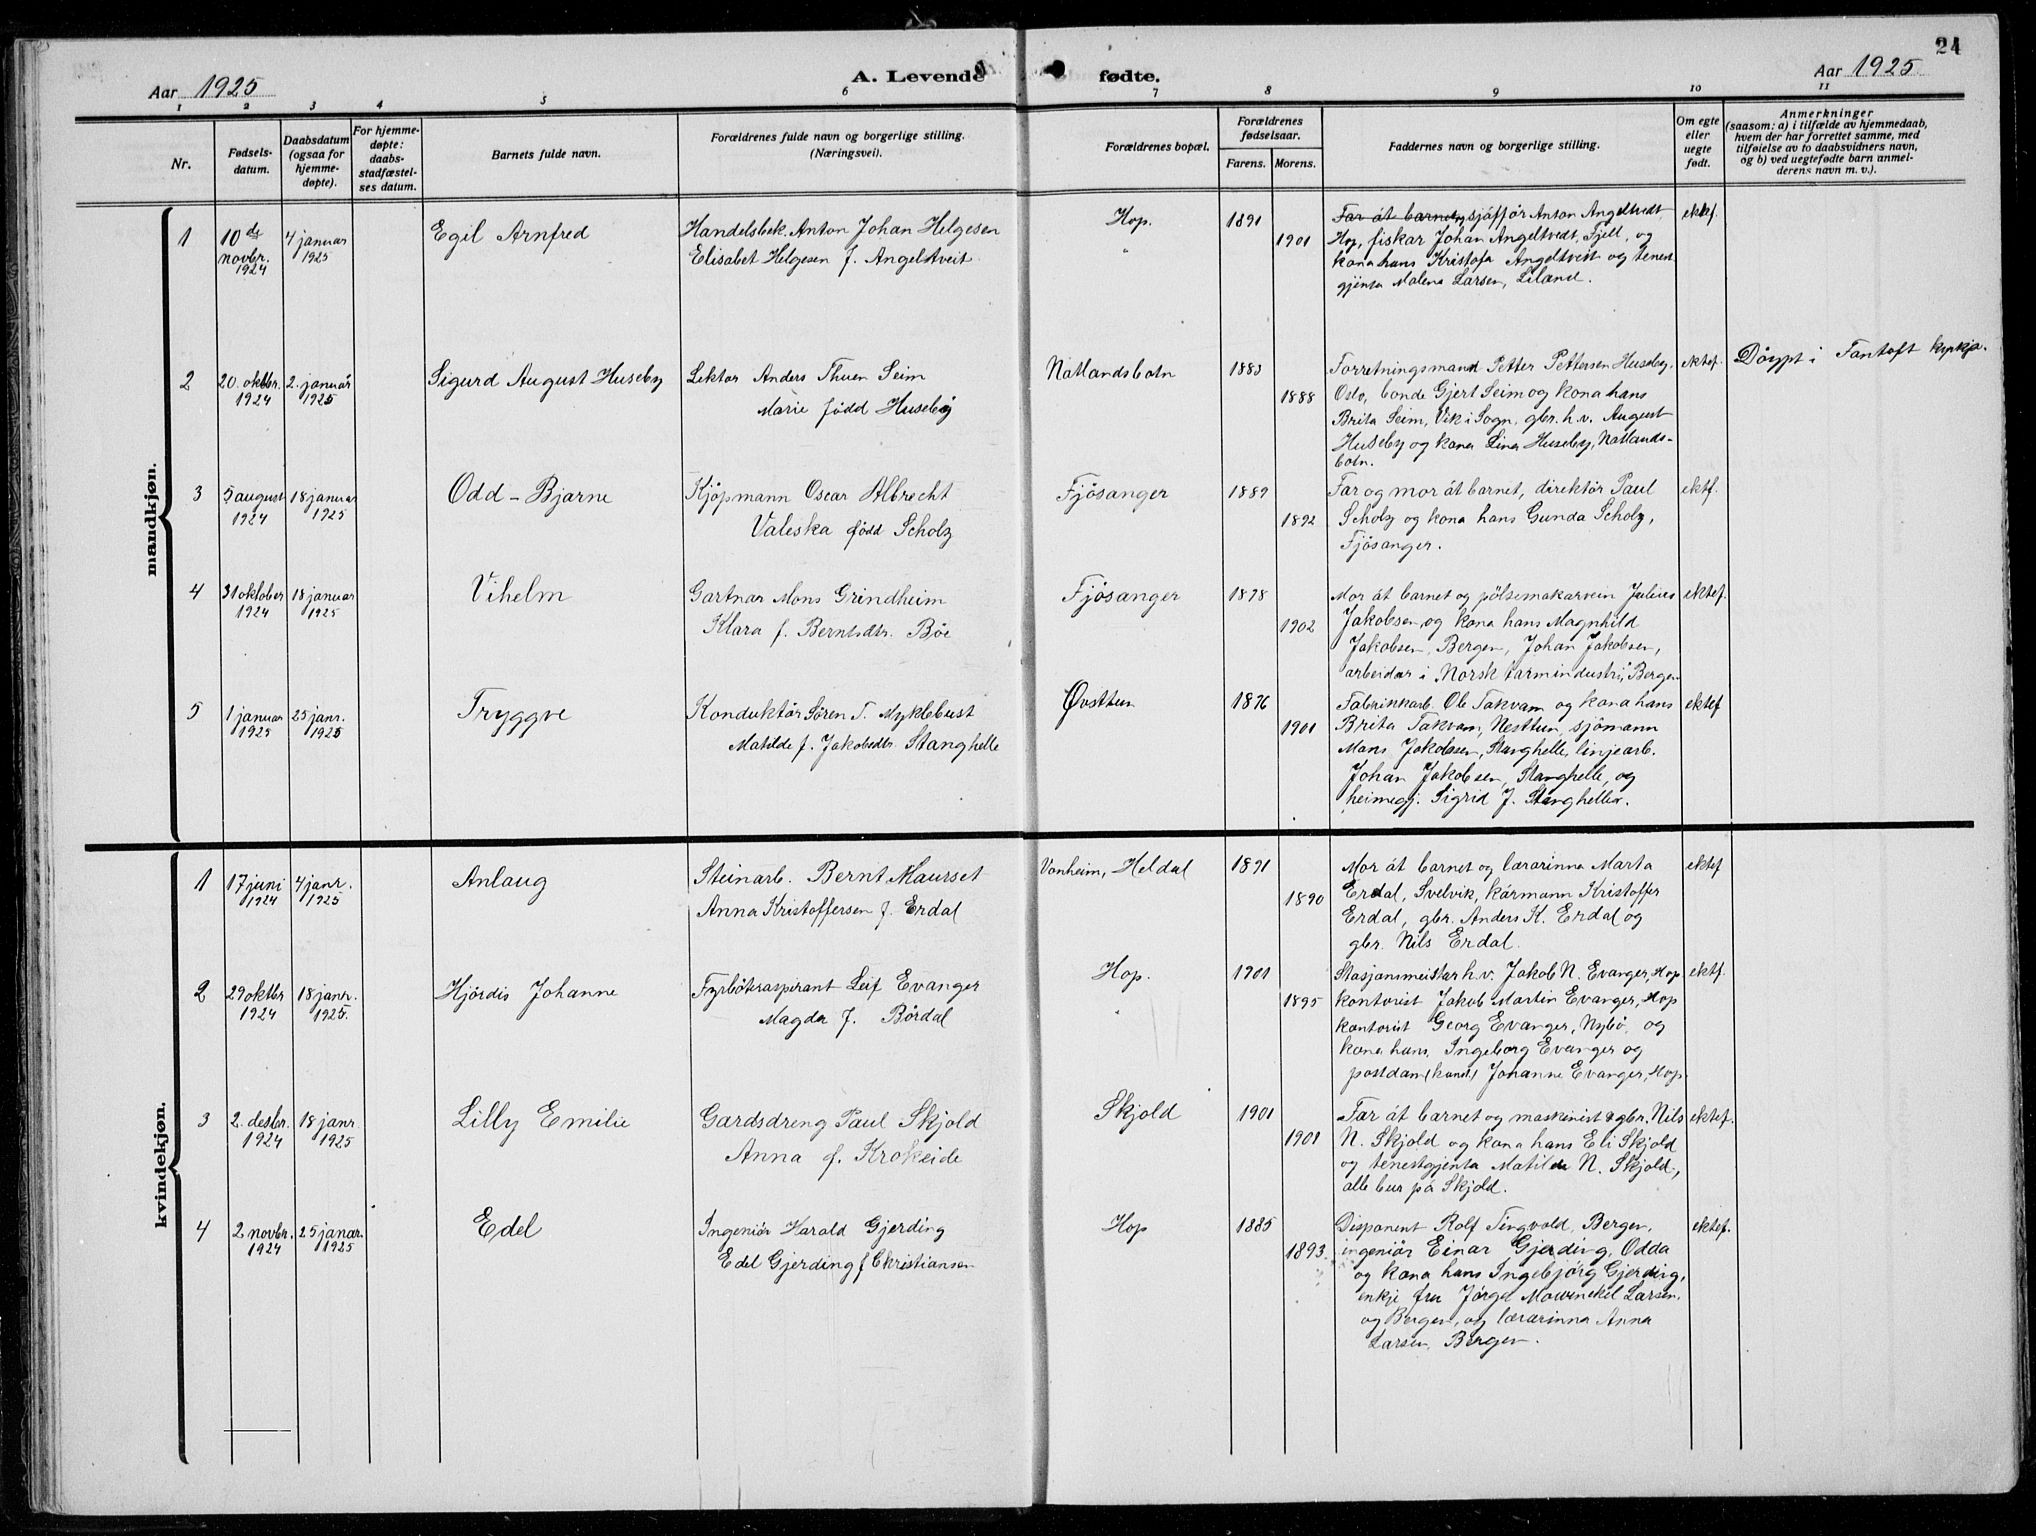 24
Aar 1925
A. Levende
fødte.
Aar 1925
1 2 3 4 5 6 7 8 9 10 11
Nr.
Fødsels-
datum.
Daabsdatum
(ogsaa for
hjemme-
døpte).
For hjemme-
døpte:
daabs-
stadfæstel-
ses datum.
Barnets fulde navn.
Forældrenes fulde navn og borgerlige stilling.
(Næringsvei).
Forældrenes bopæl.
Forældrenes
fødselsaar.
Farens. Morens.
Faddernes navn og borgerlige stilling.
Om egte
eller
uegte
født.
Anmerkninger
(saasom: a) i tilfælde av hjemmedaab,
hvem der har forrettet samme, med
tilføielse av to daabsvidners navn,
og b) ved uegtefødte barn anmel-
derens navn m. v.).
mandkjøn.
1
10 de
novbr.
1924
4 januar
1925
Egil Arnfred
Handelsbek. Anton Johan Helgesen
Elisabet Helgesen f. Angeltveit
Hop.
"
1891
1901
Far åt barnet, sjåffør Anton Angeltvedt
Hop, fiskar Johan Angeltvedt, Fjell, og
kona hans Kristofa Angeltveit og tenest
gjenta Malena Larsen, Liland.
ektef.
2
20. oktbr.
1924
2. januar
1925
Sigurd August Huseby
Lektor Anders Thuen Seim
Marie född Huseby
Natlandsbotn
1883
1888
Forretningsmand Petter Pettersen Huseby,
Oslo, bonde Gjert Seim og kona hans
Brita Seim, Vik i Sogn, gbr. h.v. August
Huseby og kona Lina Huseby, Natlands-
botn.
ektef.
Döypt i Fantoft kyrkja.
3
5 august
1924
18 januar
1925
Odd-Bjarne
Kjöpmann Oscar Albrecht
Valeska född Scholz
Fjösanger
1889
1892
Far og mor åt barnet, direktör Paul
Scholz og kona hans Gunda Scholz,
Fjösanger.
ektf.
4
31 oktober
1924
18 januar
1925
Vihelm
Gartnar Mons Grindheim
Klara f. Berntsdtr. Böe
Fjösanger
1878
1902
Mor åt barnet og pölsemakarvein Julius
Jakobsen og kona hans Magnhild
Jakobsen, Bergen, Johan Jakobsen,
arbeidar i Norsk tarmindustri, Bergen
ektef.
5
1 januar
1925
25 janr.
1925
Tryggve
Konduktör Sören T. Myklebust
Matilde f. Jakobsdtr. Stanghelle
Øvsttun
1876
1901
Fabrikkarb. Ole Takvam og kona hans
Brita Takvam, Nesttun, sjömann
Mons Jakobsen, Stanghelle, linjearb.
Johan Jakobsen, Stanghelle, og
heimegj. Sigrid J. Stanghelle.
ektef
kvindekjøn.
1
17 juni
1924
4 janr.
1925
Anlaug
Steinarb. Bernt Maurset
Anna Kristoffersen f. Erdal
Vonheim, Heldal
1891
1890
Mor åt barnet og lærarinna Marta
Erdal, Svelvik, kårmann Kristoffer
Erdal, gbr. Anders K. Erdal og
gbr. Nils Erdal.
ektef
2
29 oktbr
1924
18 janr.
1925.
Hjördis Johanne
Fyrbötaraspirant Leif Evanger
Magda f. Bördal
Hop.
"
1901
1895
Stasjonsmeistar h.v. Jakob N. Evanger, Hop
kontorist Jakob Martin Evanger, Hop
kontorist Georg Evanger, Nybö, og
kona hans Ingeborg Evanger og
postdam (kunst) Johanne Evanger, Hop
ektf.
3
2. desbr.
1924
18 janr
1925
Lilly Emilie
Gardsdreng Paul Skjold
Anna f. Krokeide
Skjold
1901
1901
Far åt barnet og maskinist & gbr. Nils
N. Skjold og kona hans Eli Skjold
og tenestgjenta Matilde N. Skjold,
alle bur på Skjold.
ektef.
4
2 novbr.
1924
25 januar.
1925
Edel
Ingeniör Harald Gjerding
Edel Gjerding f Christiansen
Hop
1885
1893.
Disponent Rolf Tingvold, Bergen,
ingeniör Einar Gjerding, Odda
og kona hans Ingebjörg Gjerding,
enkje fru Jörga Mowinckel Larsen,
og Bergen, og lærarinna Anna
Larsen, Bergen.
ektef.